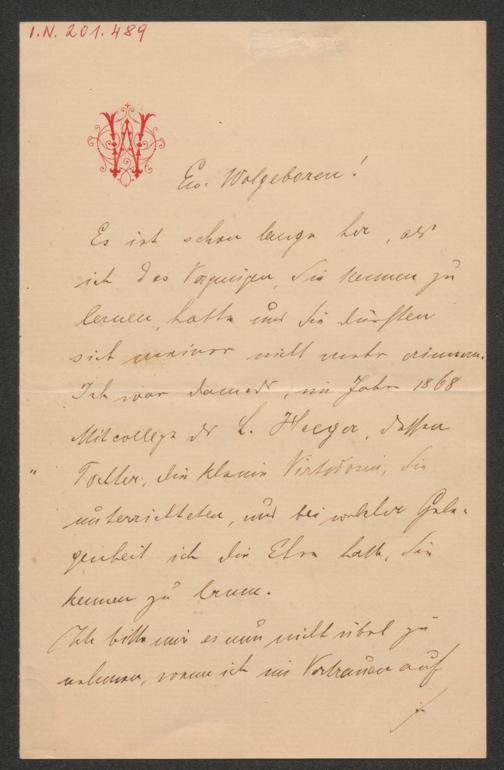 I.N. 201.489
W
Ew. Wolgeboren!
Es ist schon lange her, als
ich das Vergnügen, Sie kennen zu
lernen, hatte und Sie dürften
sich meiner nicht mehr erinnern.
Ich war damals, im Jahre 1868
Mitcollege des L. Heeger, dessen
Tochter, die kleine Sie
unterrichteten, und bei welcher Gele-
genheit ich die Ehre hatte, Sie
kennen zu lernen.
Ich bitte mir es nun nicht übel zu
nehmen, wenn ich im Vertrauen auf